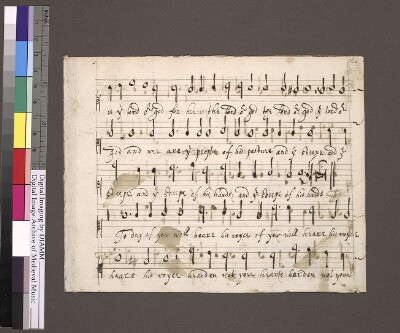 is ye lord or god for hee is the lord or god for lord or god ye lord or
God and wee are ye people of his pasture and ye sheepe and ye
sheepe and ye sheepe of his hands and ye sheepe of his hands
To day if you will heare his voyce if you will heare his voyce
heare his voyce harden not your hearts harden not your
Digital Imaging by DIAMM
Digital Image Archive of Medieval Music